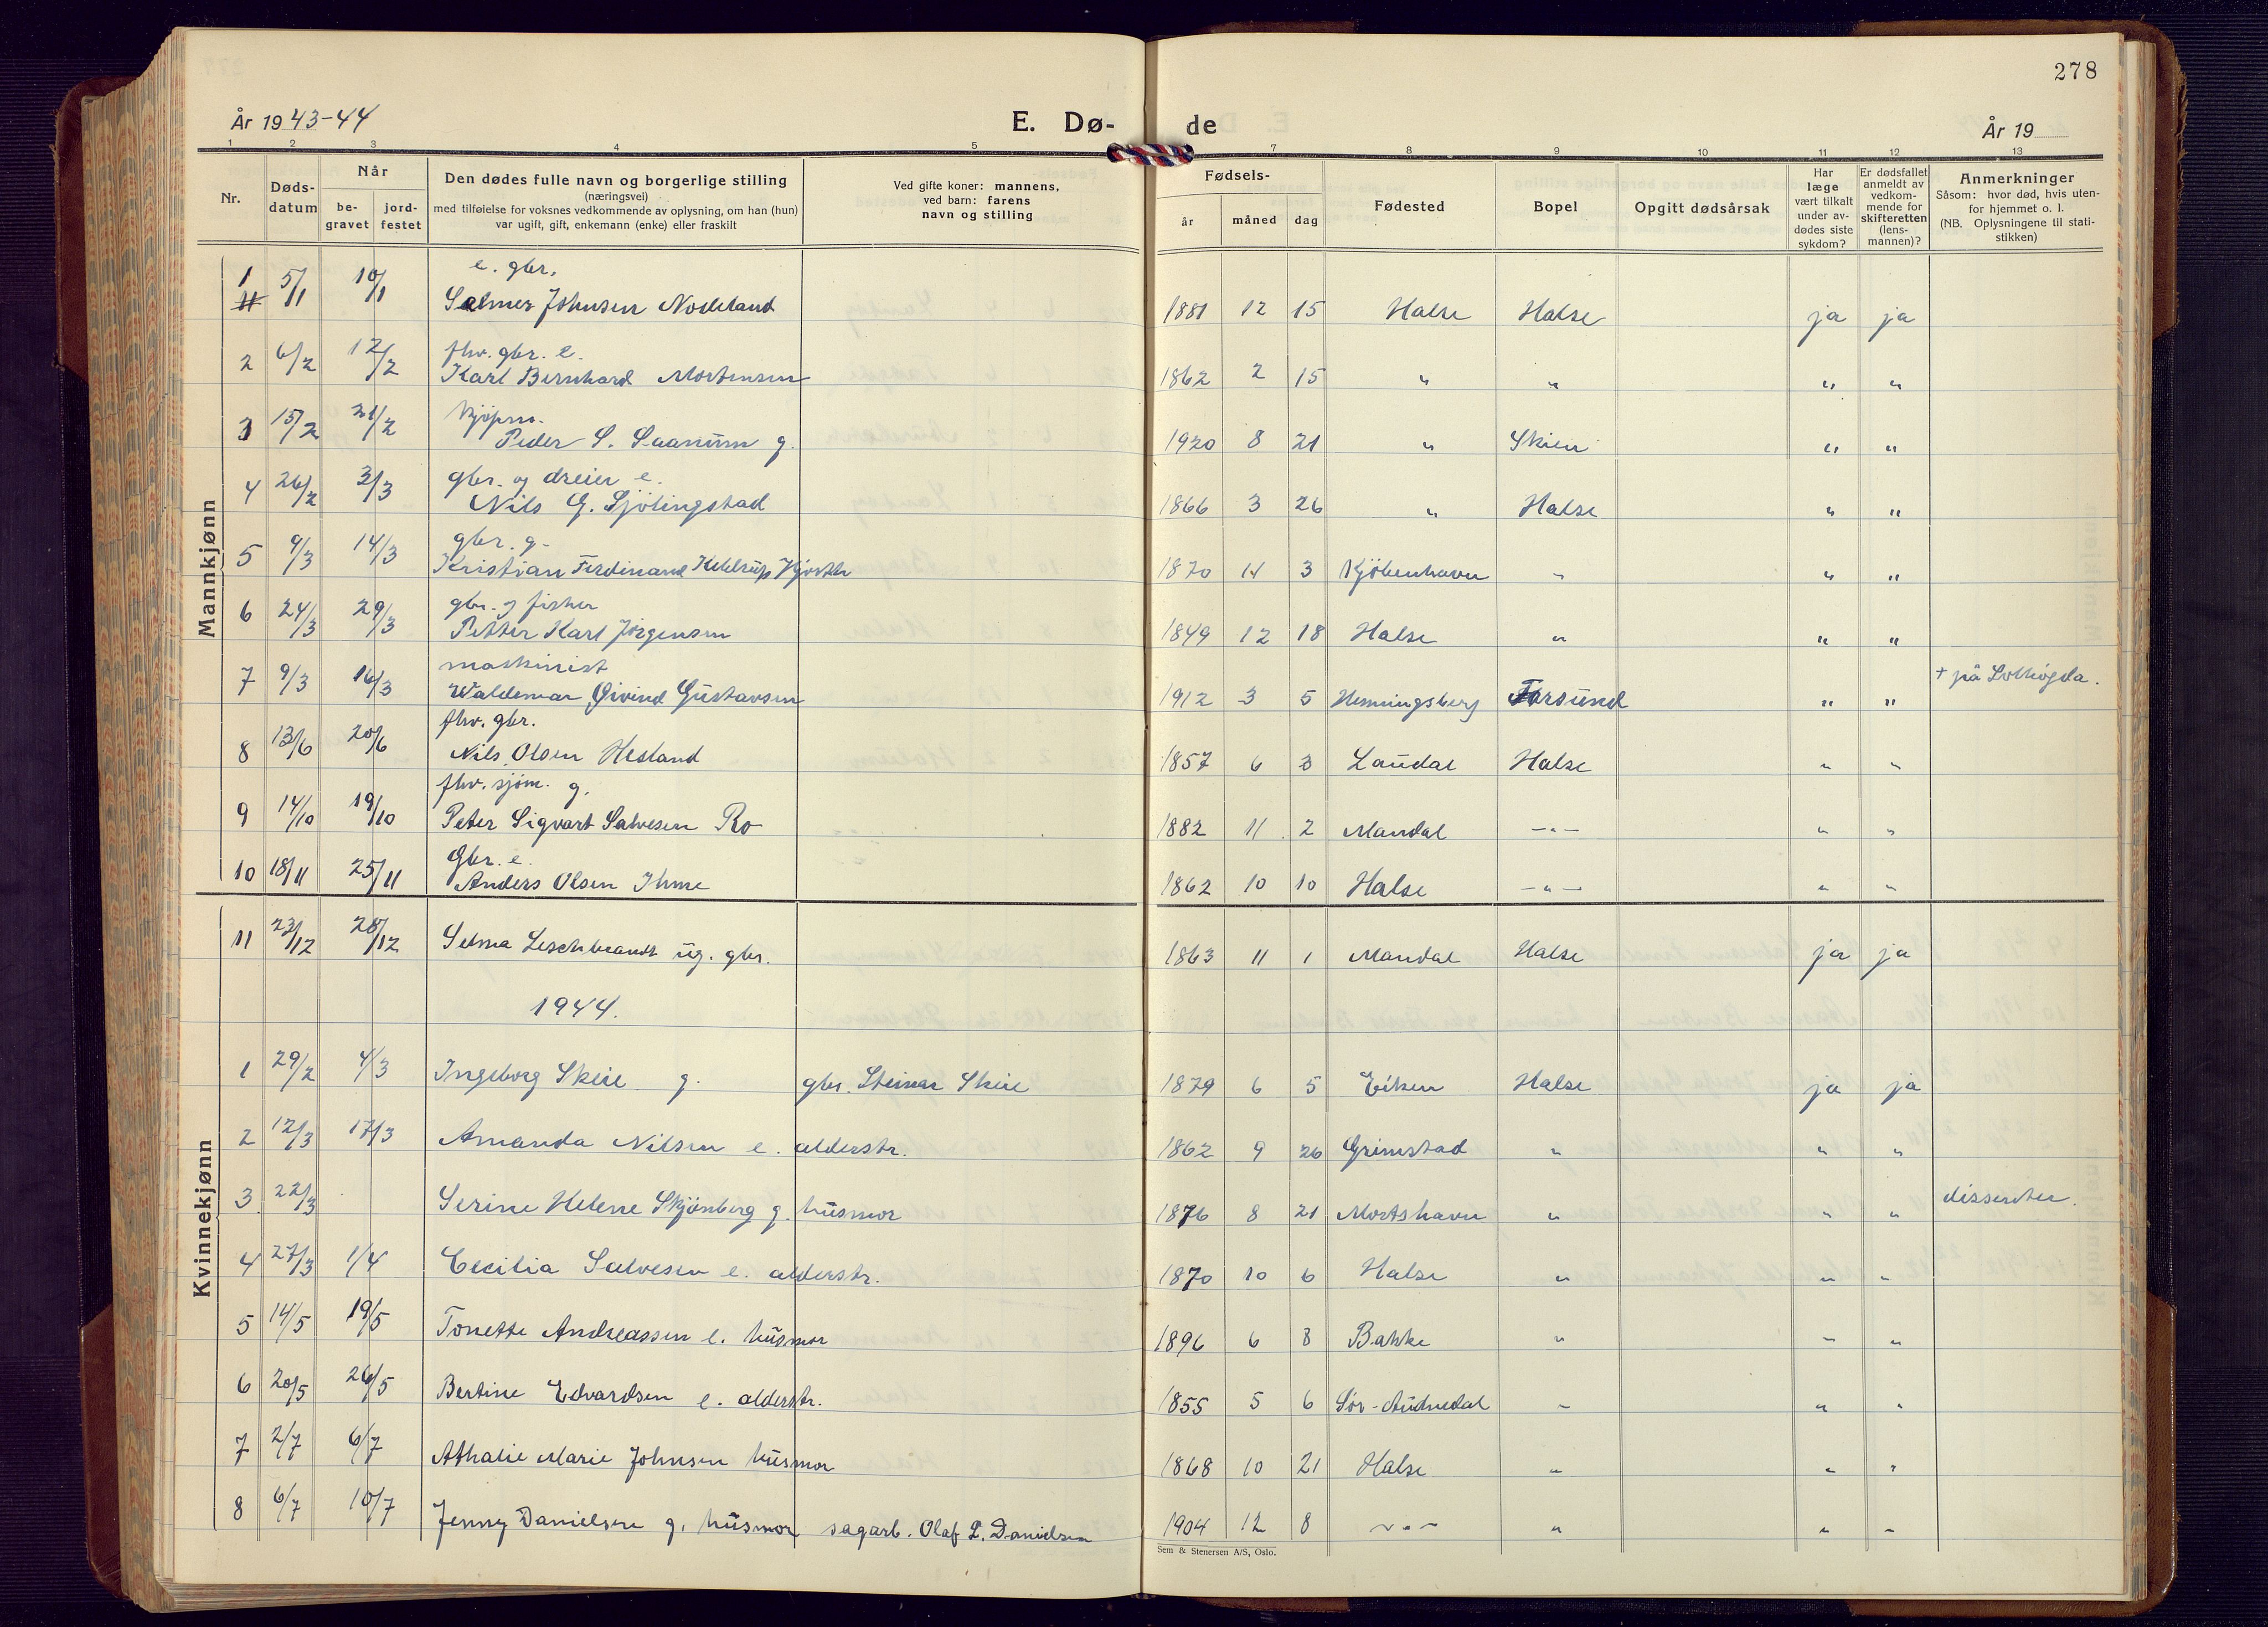 278
År 1943-44 E. Dø- de År 19
1 2 3 4 5 7 8 9 10 11 12 13
Nr. Døds-datum Når be-gravet jord-festet Den dødes fulle navn og borgerlige stilling (næringsvei) med tilføielse for voksnes vedkommende av oplysning, om han (hun) var ugift, gift, enkemann (enke) eller fraskilt Ved gifte koner: mannens, ved barn: farens navn og stilling Fødsels- år måned dag Fødested Bopel Opgitt dødsårsak Har læge vært tilkalt under av-dødes siste sykdom? Er dødsfallet anmeldt av vedkom-mende for skifteretten (lens-mannen)? Anmerkninger Såsom: hvor død, hvis uten-for hjemmet o. l. (NB. Oplysningene til stati-stikken)
Mannkjønn
e. gbr.
1 5/1 10/1 Salmer Johnsen Nodeland 1881 12 15 Halse Halse ja ja
fhv. gbr. e.
2 6/2 12/2 Karl Bernhard Mortensen 1862 2 15 " " " "
kjøpm.
3 15/2 21/2 Peder S. Saanum g. 1920 8 21 " Skien " "
gbr. og dreier e.
4 26/2 3/3 Nils G. Sjölingstad 1866 3 26 " Halse " "
gbr. g.
5 9/3 14/3 Kristian Ferdinand 1870 11 3 Kjöbenhavn " " "
gbr. og fisker
6 24/3 29/3 Petter Karl Jörgensen 1849 12 18 Halse " " "
maskinist
7 9/3 16/3 Waldemar Øivind Gustavsen 1912 3 5 Henningsberg Farsund " " + på
fhv. gbr.
8 13/6 20/6 Nils Olsen Hesland 1857 6 3 Laudal Halse " "
fhv. sjöm. g.
9 14/10 19/10 Peter Sigvart Salvesen Ro 1882 11 2 Mandal -"- " "
Gbr. e.
10 18/11 25/11 Anders Olsen Ihme 1862 10 10 Halse -"- " "
11 23/12 28/12 Selma Leschbrandt ug. gbr. 1863 11 1 Mandal Halse ja ja
1944.
Kvinnekjønn
1 29/2 4/3 Ingeborg Skeie g. gbr. Steinar Skeie 1879 6 5 Eiken Halse ja ja
2 12/3 17/3 Amanda Nilsen e. alderstr. 1862 9 26 Grimstad " " "
3 22/3 Serine Helene Skjönberg g. husmor 1876 8 21 Mortshavn " " " dissenter.
4 27/3 1/4 Cecilia Salvesen e. alderstr. 1870 10 6 Halse " " "
5 14/5 19/5 Tonette Andreassen e. husmor 1896 6 8 Bakke " " "
6 20/5 26/5 Bertine Edvardsen e. alderstr. 1855 5 6 Sör-Audnedal " " "
7 2/7 6/7 Athalie Marie Johnsen husmor 1868 10 21 Halse " " "
8 6/7 10/7 Jenny Danielsen g. husmor sagarb. Olaf P. Danielsen 1904 12 8 -"- " " "
Sem & Stenersen A/S, Oslo.